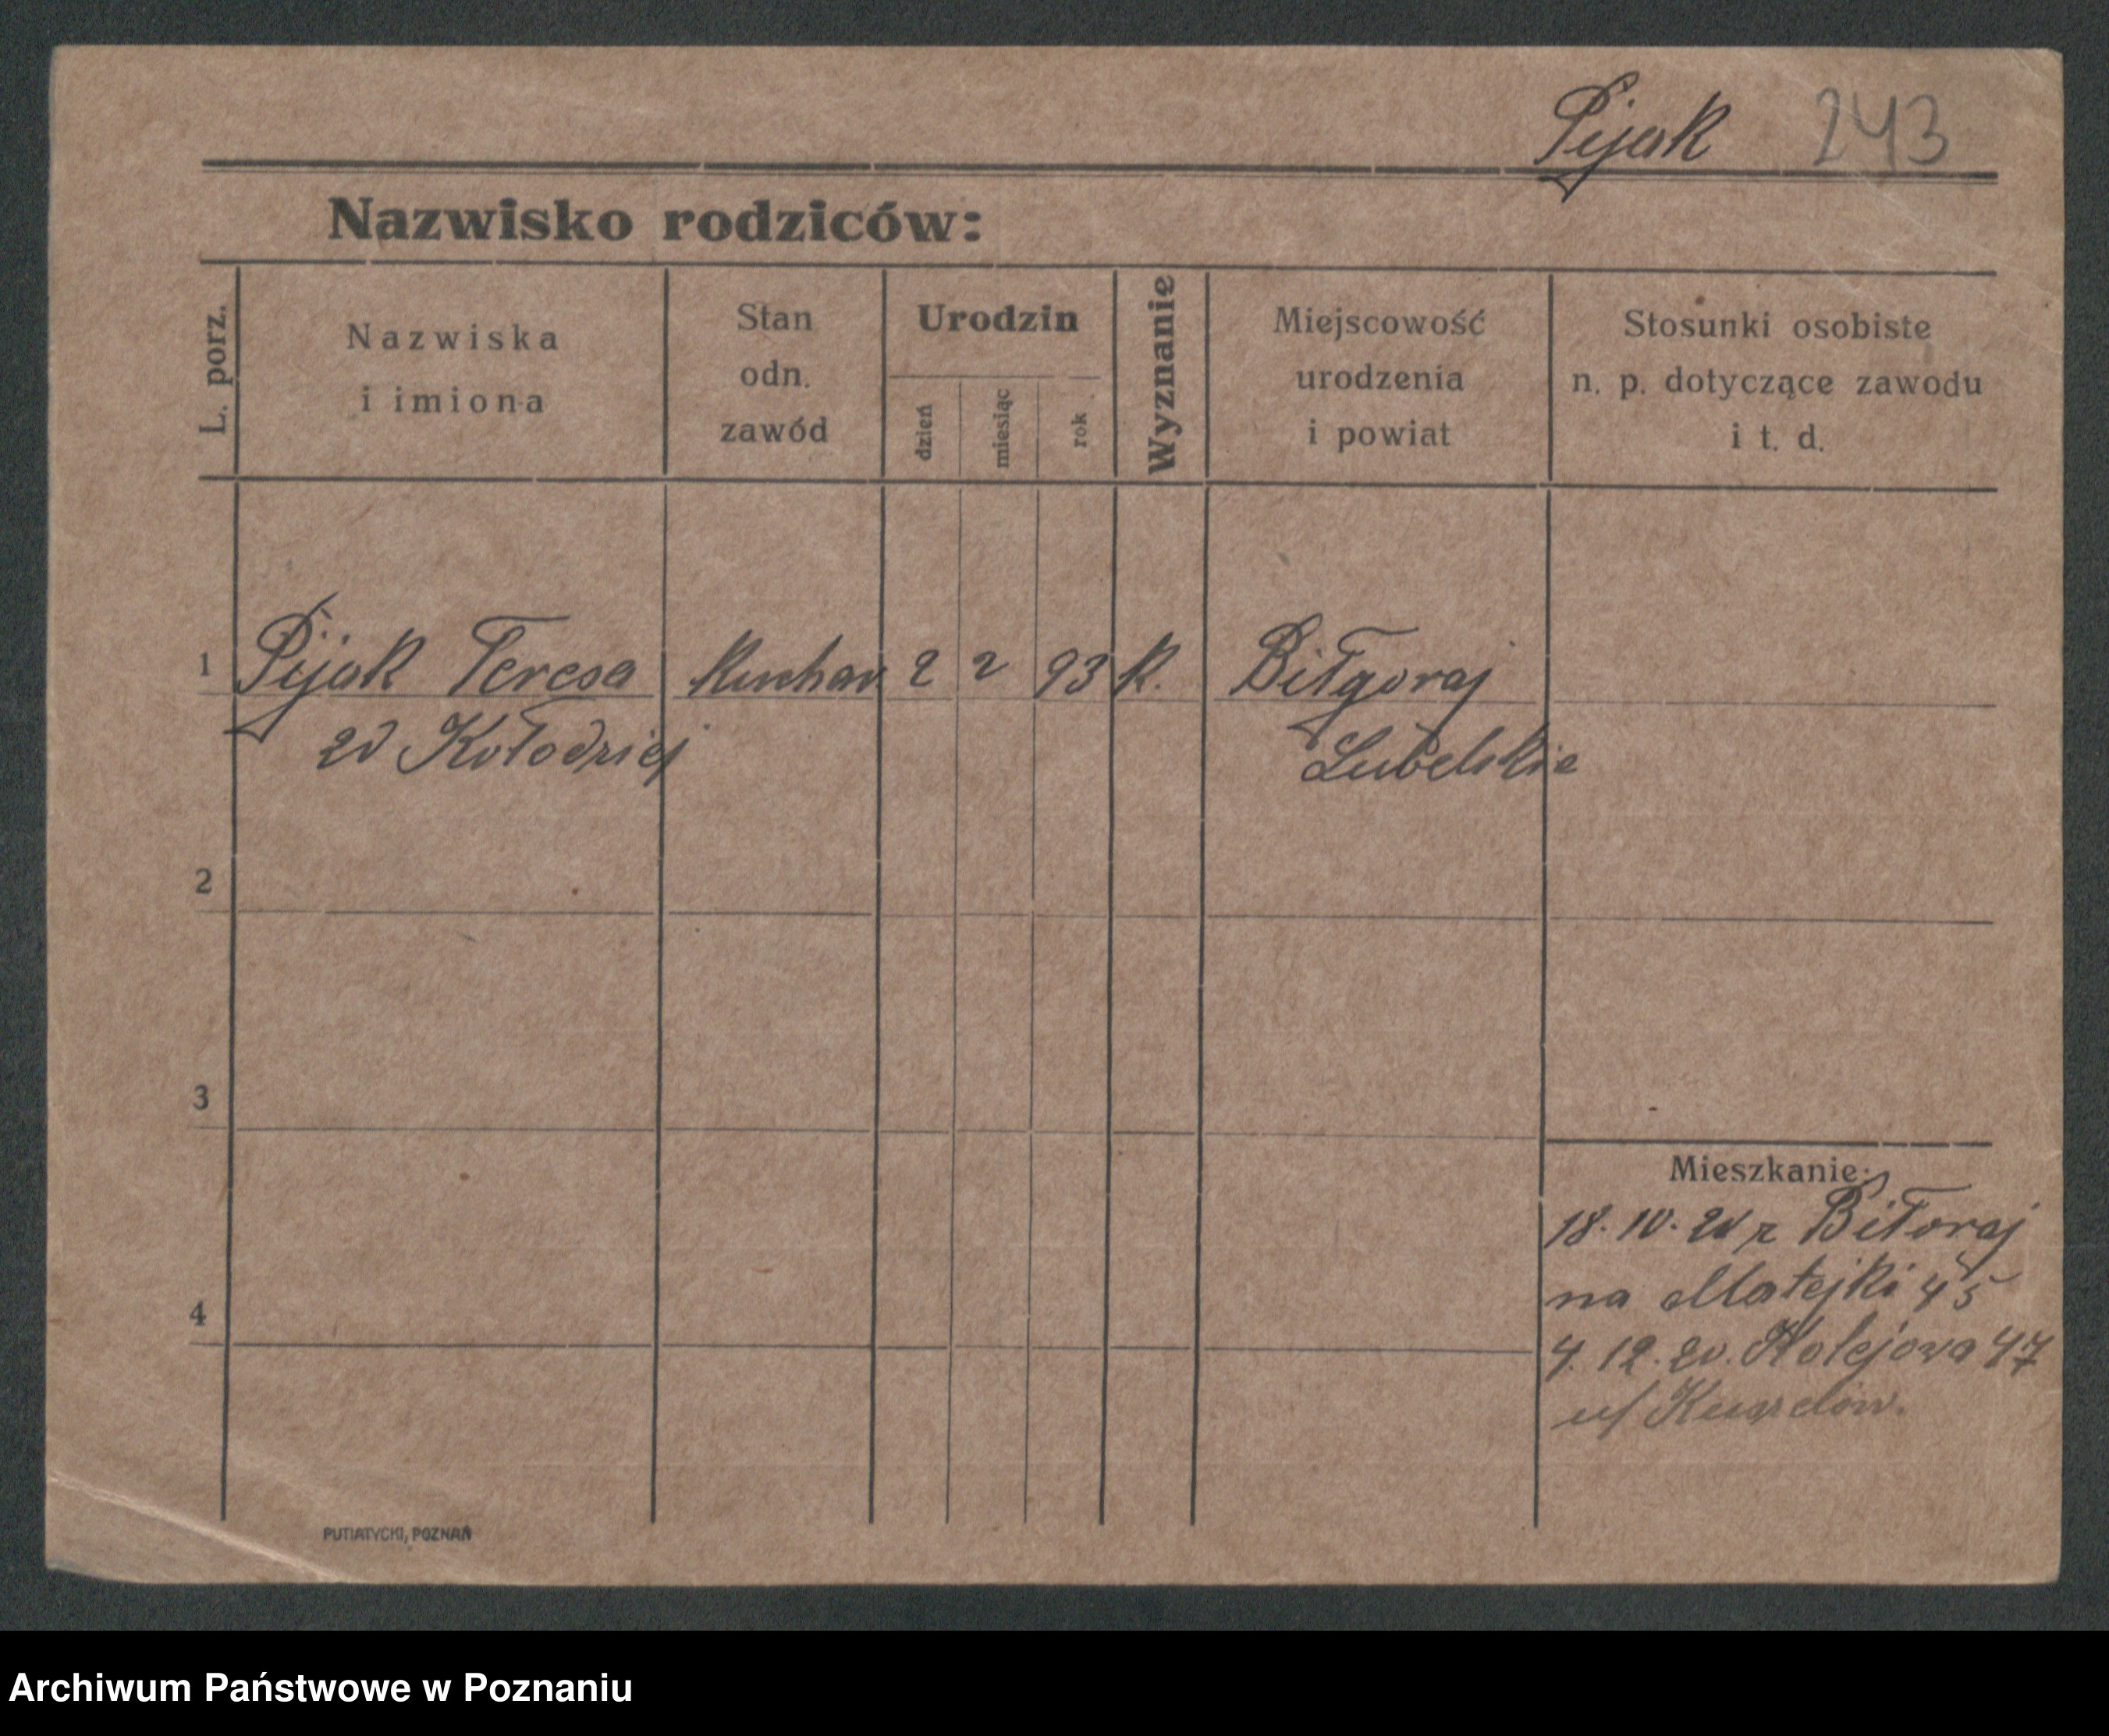 Pijak 243
Nazwisko rodziców:
L. porz.
Nazwiska
i imiona
Stan
odn.
zawód
Urodzin
dzień
miesiąc
rok
Wyznanie
Miejscowość
urodzenia
i powiat
Stosunki osobiste
n. p. dotyczące zawodu
i t. d.
1 Pijak Teresa Kuchar 2 2 93 k. Biłgoraj
zd Kołodziej Lubelskie
2
3
4
Mieszkanie:
18. 10. 20 z Biłoraj
na Matejki 45
4. 12. 20. Kolejowa 47
u/
PUTIATYCKI, POZNAŃ
Archiwum Państwowe w Poznaniu